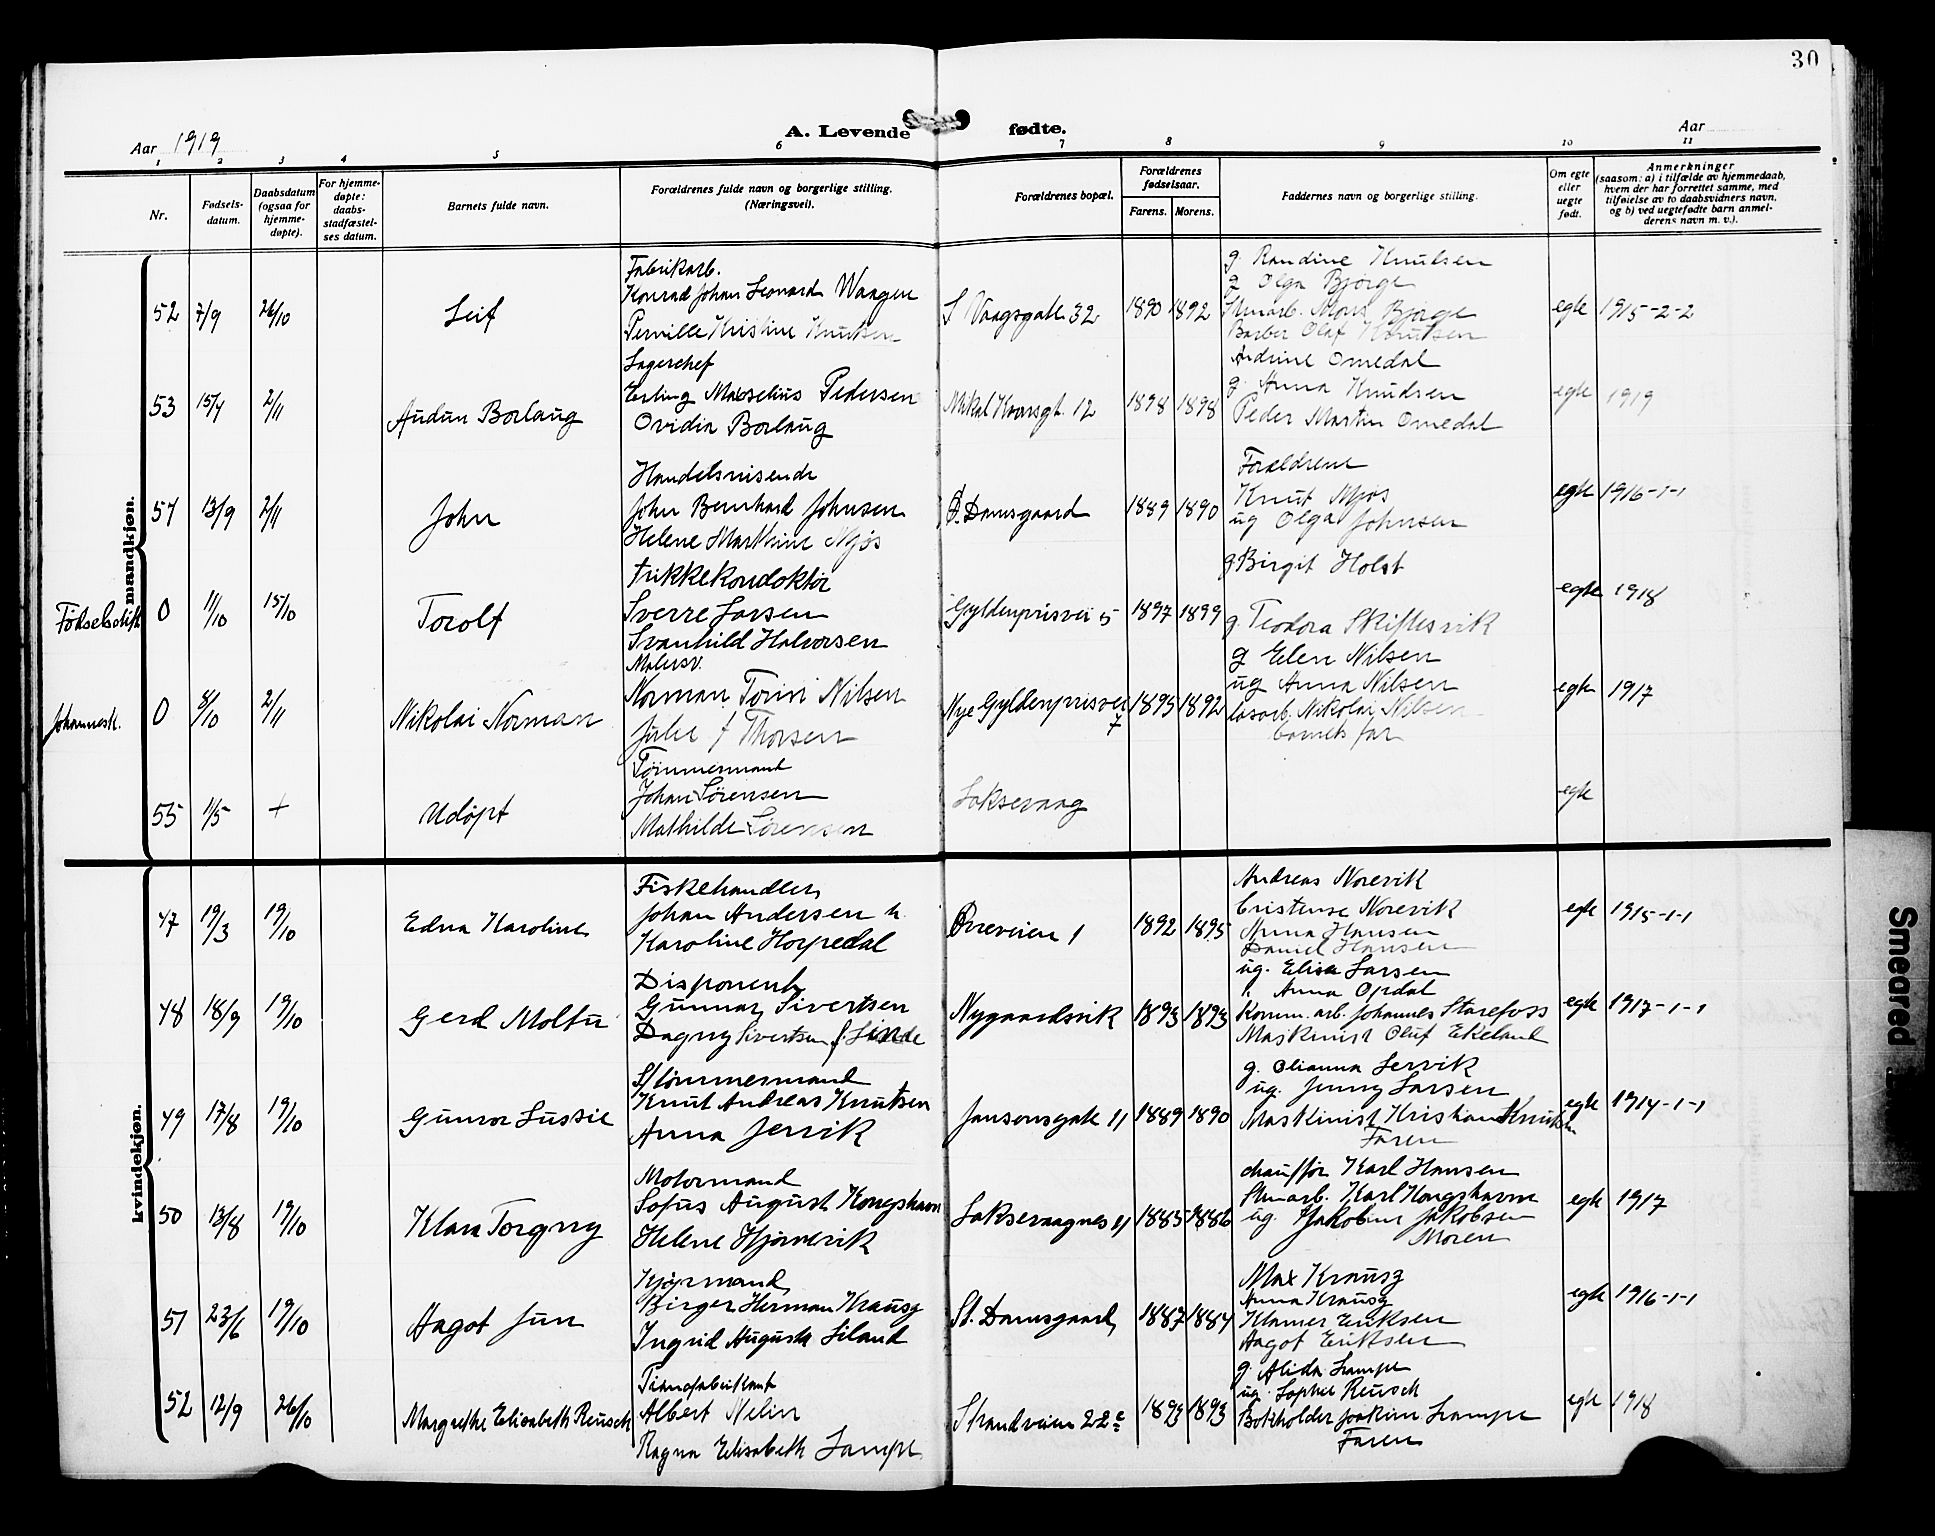 30
Aar 1919
A. Levende fødte.
Aar
1 2 3 4 5 6 7 8 9 10 11
Nr.
Fødsels-
datum.
Daabsdatum
(ogsaa for
hjemme-
døpte).
For hjemme-
døpte:
daabs-
stadfæstel-
ses datum.
Barnets fulde navn.
Forældrenes fulde navn og borgerlige stilling.
(Næringsvei).
Forældrenes bopæl.
Forældrenes
fødselsaar.
Farens. Morens.
Faddernes navn og borgerlige stilling.
Om egte
eller
uegte
født.
Anmerkninger
(saasom: a) i tilfælde av hjemmedaab,
hvem der har forrettet samme, med
tilføielse av to daabsvidners navn,
og b) ved uegtefødte barn anmel-
derens navn m. v.).
mandkjøn.
52 7/9 26/10 Leif
Fabrikarb.
Konrad Johan Leonard Waagen
Pernille Kristine Knutsen
S Vaagsgate 32 1890 1892
g. Randine Knutsen
g Olga Bjørge
Mons Bjørge
Barber Olaf Knutsen
egte 1915-2-2
53 15/4 2/11 Audun Borlaug
Lagerchef
Erling Marselius Pedersen
Ovidia Borlaug
Mikal Krarsgt. 12 1898 1898
Andrine Omedal
g. Anna Knudsen
Peder Martin Omedal
egte 1919
54 13/9 2/11 John
Handelsreisende
John Bernhard Johnsen
Helene Marthine Mjøs
St. Damsgaard 1889 1890
Forældrene
Knut Mjøs
ug Olga Johnsen
egte 1916-1-1
Fødselsstift. 0 11/10 15/10 Torolf
Trikkekonduktør
Sverre Larsen
Svanhild Halvorsen
Gyldenprisvei 5 1897 1899
g Birgit Holst
g. Teodora Skiftesvik
g Elen Nilsen
egte 1918
Johannesk. 0 8/10 2/11 Nikolai Norman
Malersv.
Norman Torini Nilsen
Julie f Thorsen
Nye Gyldenprisvei 7 1895 1892
ug Anna Nilsen
løsarb. Nikolai Nilsen
barnets far
egte 1917
55 1/5 + Udøpt
Tømmermand
Johan Sørensen
Mathilde Sørensen
Laksevaag
egte
kvindekjøn.
47 19/3 19/10 Edna Karoline
Fiskehandler
Johan Andersen h.
Karoline Hopedal
Øreveien 1 1892 1895
Andreas Norevik
Cristense Norevik
Anna Hansen
Daniel Hansen
egte 1915-1-1
48 18/9 19/10 Gerd Moltu
Disponent
Gunnar Sivertsen
Dagny Sivertsen f. Linde
Nygaardsvik 1893 1893
ug. Elisa Larsen
Anna Opdal
Komm. arb. Johannes Starefoss
Maskinist Oluf Ekeland
egte 1917-1-1
49 17/8 19/10 Gunvor Lussie
S/tømmermand
Knut Andreas Knutsen
Anna Jervik
Jansonsgate 11 1889 1890
g. Olianna Jervik
ug. Jenny Larsen
Maskinist Kristian Knutsen
Faren
egte 1914-1-1
50 13/8 19/10 Klara Torgny
Motormand
Sofus August Kongshavn
Helene Hjørnevik
Laksevaagnes 11 1885 1886
chauffør Karl Hansen
Karl Kongshavn
ug. Jakobine Jakobsen
Moren
egte 1917
51 23/6 19/10 Aagot Jun
Kjørmand
Birger Herman Krausz
Ingrid Augusta Liland
St. Damsgaard 1887 1884
Max Krausz
Anna Krausz
Klamer Eriksen
Aagot Eriksen
egte 1916-1-1
52 12/9 26/10 Margrethe Elisabeth Reusch
Pianofabrikant
Albert Nelin
Ragna Elisabeth Lampe
Strandveien 22c 1893 1893
g. Alida Lampe
ug. Sophie Reusch
Bokholder Joakim Lampe
Faren
egte 1918
Smeared